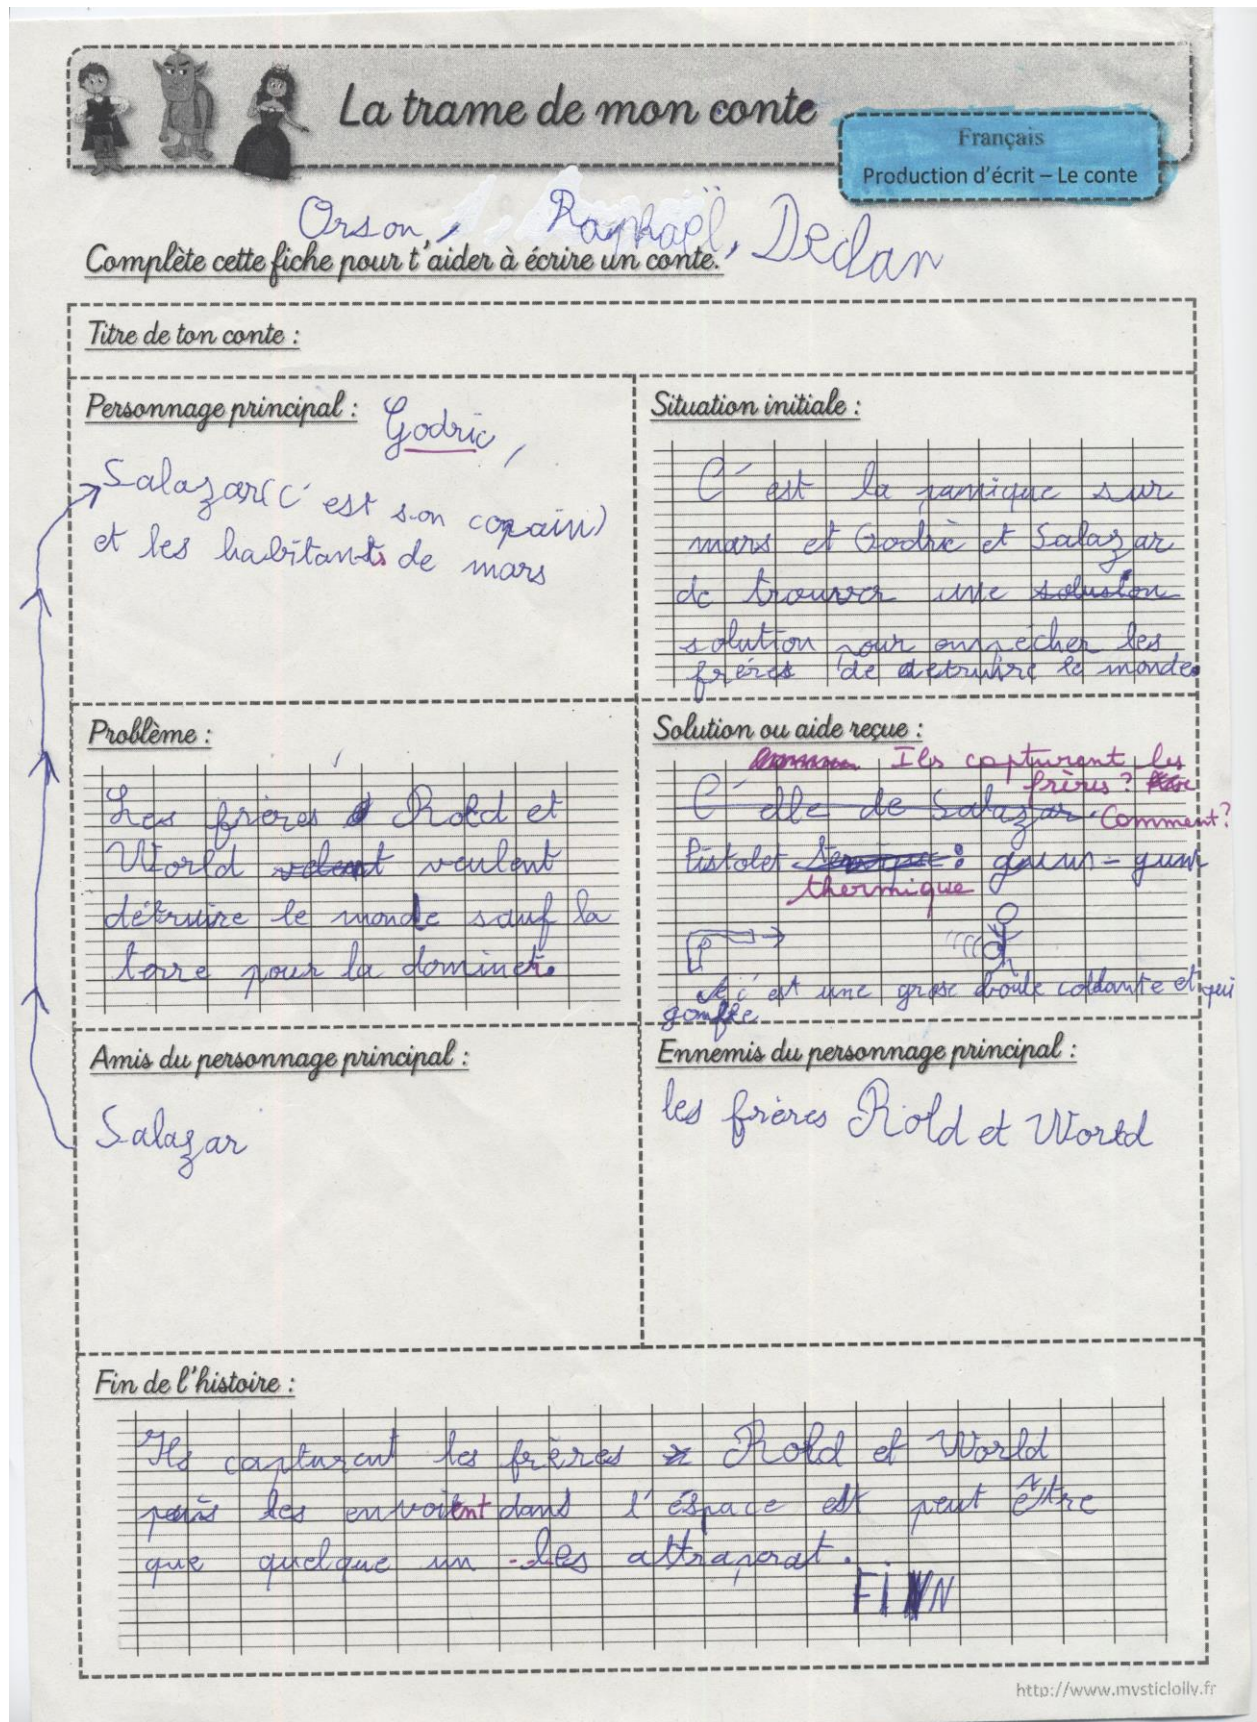 La trame de mon conte
Français
Production d'écrit – Le conte
Orson, Raphaël, Declan
Complète cette fiche pour t'aider à écrire un conte.
Titre de ton conte :
Personnage principal : Godric,
Salazar (c'est son copain)
et les habitants de mars
Situation initiale :
C'est la panique sur
mars et Godric et Salazar
de trouver une solusion
solution pour empêcher les
frères de detruire le monde.
Problème :
Les frères Rold et
World veulent
détruire le monde sauf la
terre pour la dominer.
Solution ou aide reçue :
Ils capturent les
frères ?
C'elle de Salazar. Comment ?
Pistolet : gum-gum
thermique
c'est une grose boule collante et qui
gonfle
Amis du personnage principal :
Salazar
Ennemis du personnage principal :
les frères Rold et World
Fin de l'histoire :
Ils capturent les frères Rold et World
puis les envoient dans l'éspace est peut être
que quelque un les attraperat.
FIN
http://www.mysticlolly.fr